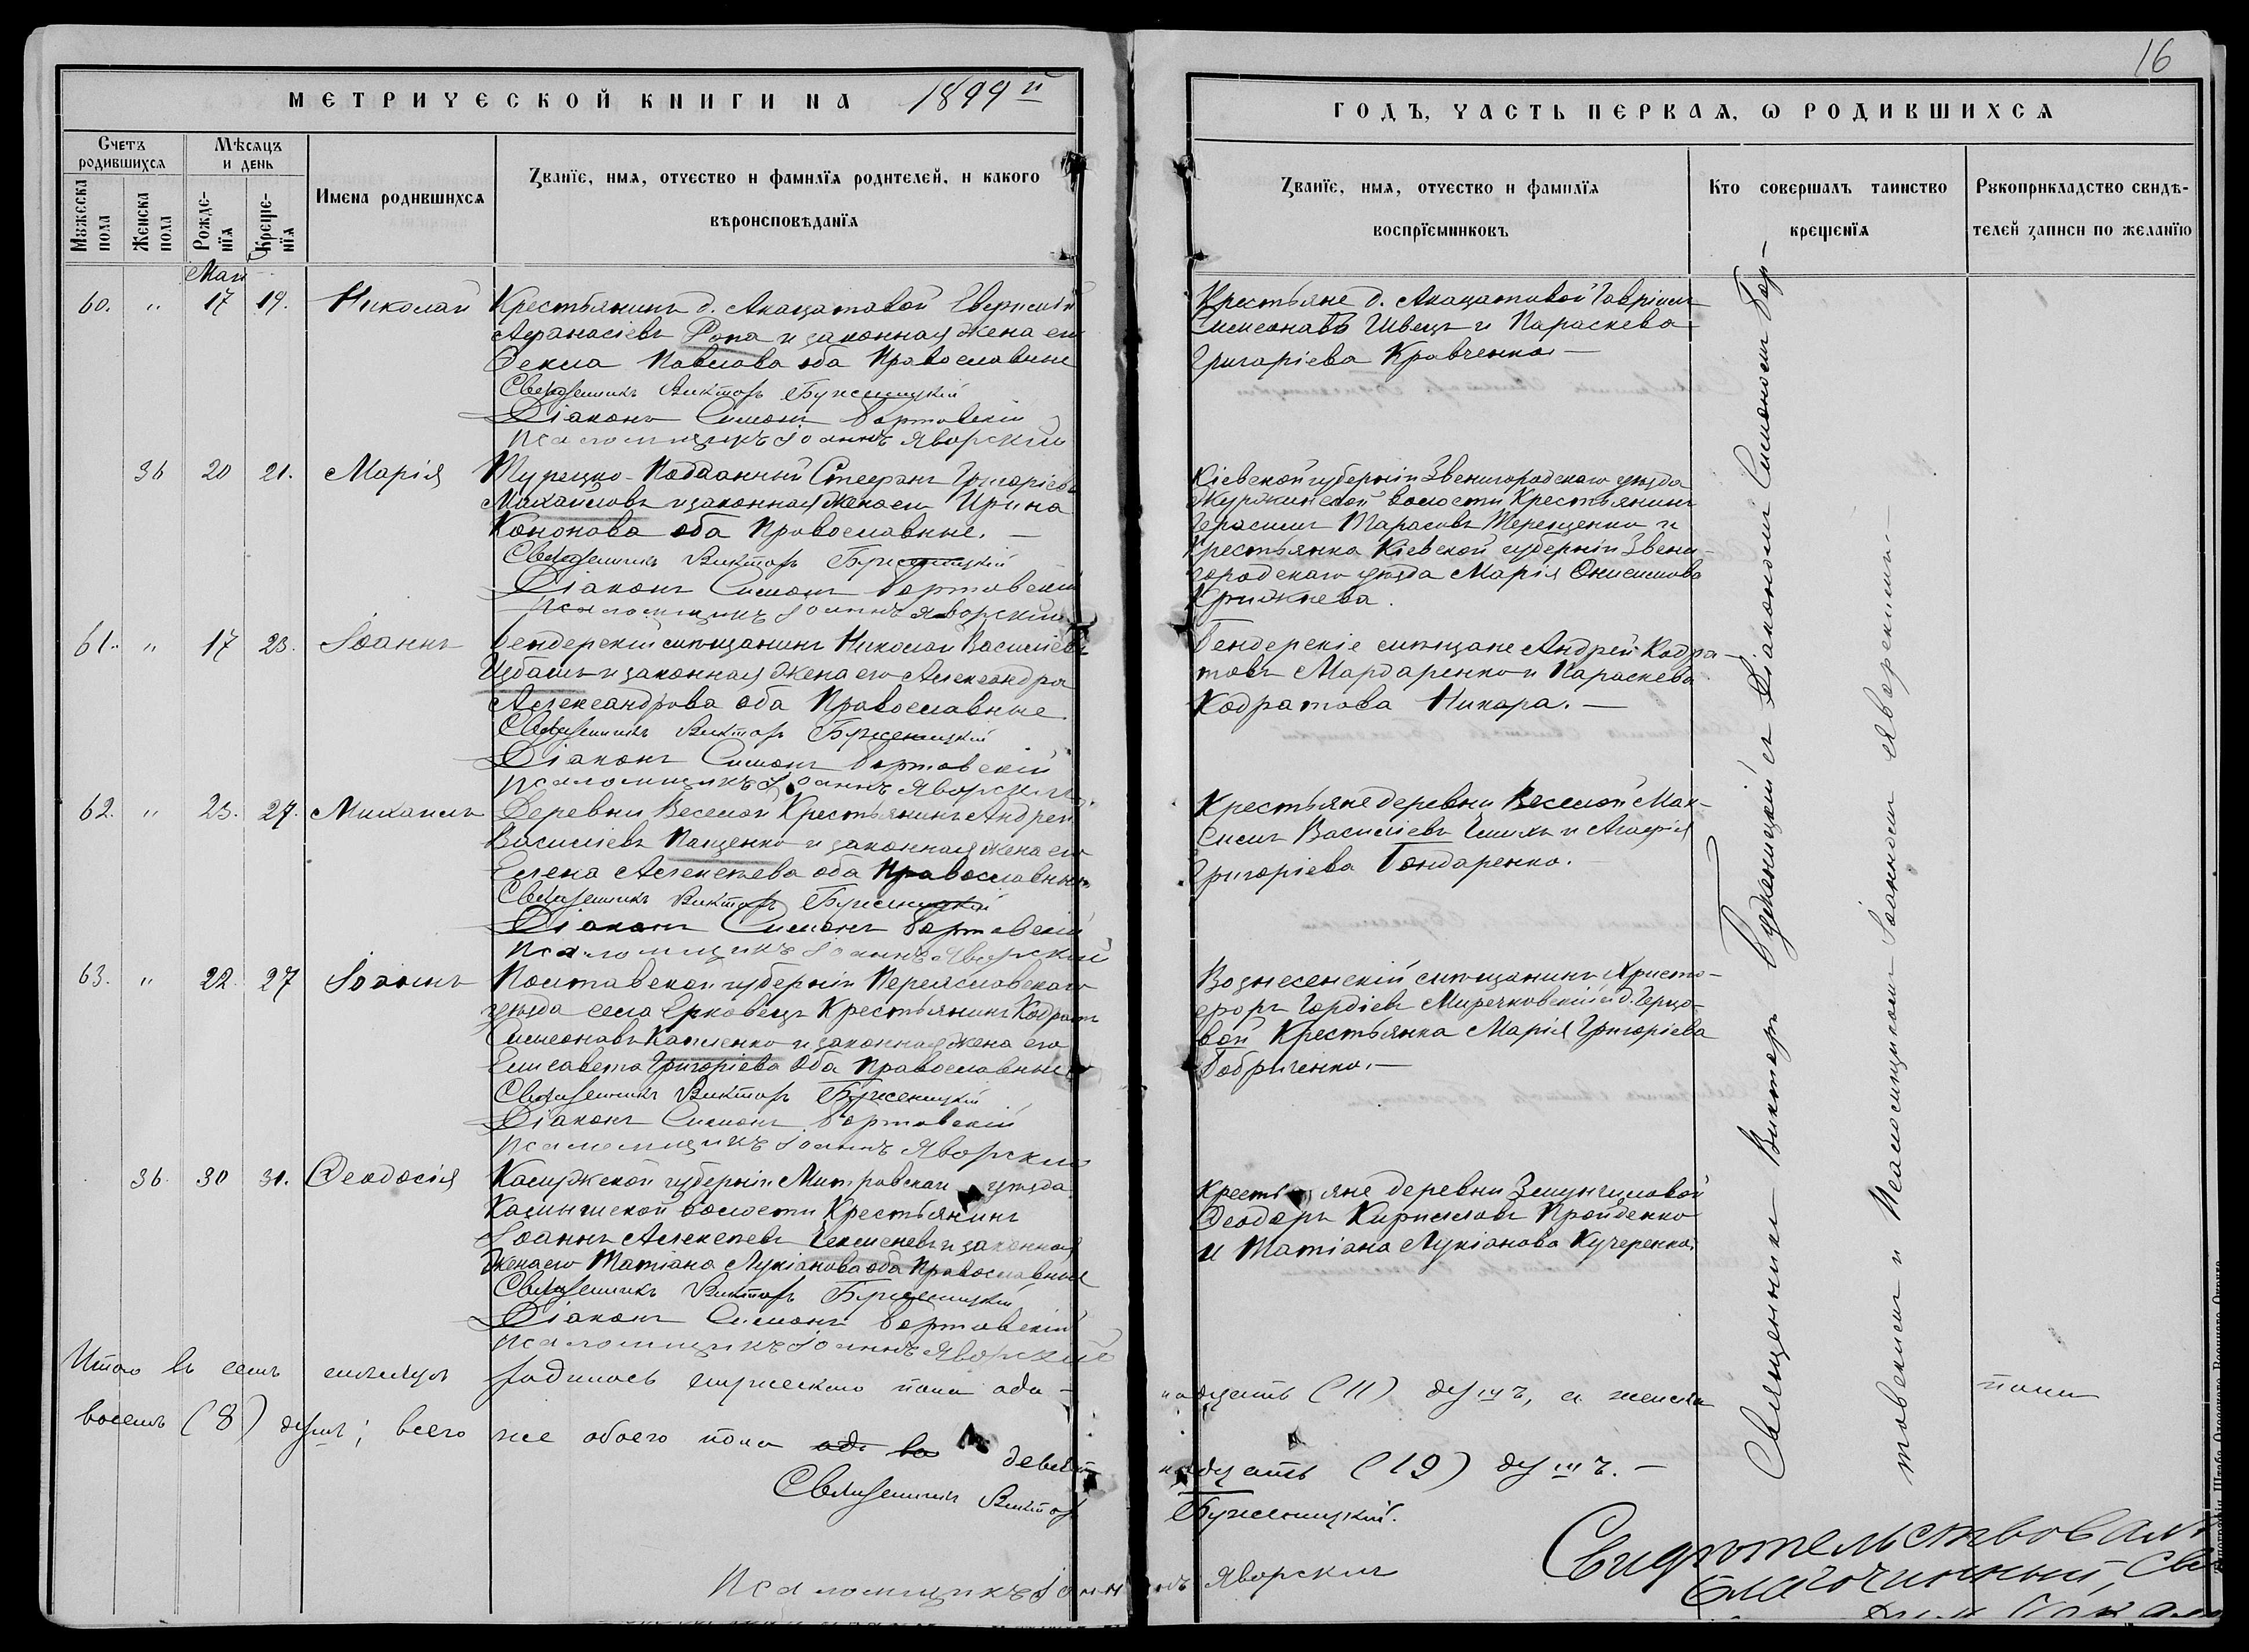 16
МЕТРИЧЕСКОЙ КНИГИ НА 1899 й
ГОДЪ, ЧАСТЬ ПЕРВАЯ, Ѡ РОДИВШИХСѦ
Счетъ родившихся
Мѣсяцъ и день
Мужеска пола
Женска пола
Рожденїя
Крещенїя
Имена родившихся
Званїе, имя, отчество и фамилїя родителей, и какого
вѣроисповѣданїя
Званїе, имя, отчество и фамилїя
воспрїемниковъ
Кто совершалъ таинство
крещенїя
Рукоприкладство свидѣ-
телей записи по желанїю
Май
60. " 17 19. Николай
Крестьянинъ д. Акацатовой Евгений
Афанасіевъ Ропа и законная жена его
Ѳекла Павлова оба Православные
Священникъ Викторъ Буженицкій
Діаконъ Симеонъ Бортовскій
Псаломщикъ Іоаннъ Яворский
Крестьяне д. Акацатовой Гавріилъ
Симеоновъ Швецъ и Параскева
Григоріева Кравченко —
36 20 21. Марія
Турецко-Подданный Стефанъ Григоріевъ
Михайловъ и законная жена его Ирина
Кононова оба Православные. —
Священникъ Викторъ Буженицкій
Діаконъ Симеонъ Бортовскій
Псаломщикъ Іоаннъ Яворский
Кіевской губерніи Звенигородскаго уѣзда
волости Крестьянинъ
Герасимъ Тарасовъ Терещенко и
Крестьянка Кіевской губерніи Звени-
городскаго уѣзда Марія Онисимова
61. " 17 23. Іоаннъ
Бендерскій мѣщанинъ Николай Василіевъ
и законная жена его Александра
Александрова оба Православные
Священникъ Викторъ Буженицкій
Діаконъ Симеонъ Бортовскій
Псаломщикъ Іоаннъ Яворский
Бендерскіе мѣщане Андрей Кодра-
товъ Мардаренко и Параскева
Кодратова Никора. —
62. " 23. 27. Михаилъ
Деревни Веселой Крестьянинъ Андрей
Василіевъ Пащенко и законная жена его
Елена Алексѣева оба Православные
Священникъ Викторъ Буженицкій
Діаконъ Симеонъ Бортовскій
Псаломщикъ Іоаннъ Яворский
Крестьяне деревни Веселой Мак-
симъ Василіевъ и Агафія
Григоріева Бондаренко.
63. " 22 27 Іоаннъ
Полтавской губерніи Переяславскаго
уѣзда села Ерковецъ Крестьянинъ Кодратъ
Симеоновъ Капленко и законная жена его
Елисавета Григоріева оба Православные
Священникъ Викторъ Буженицкій
Діаконъ Симеонъ Бортовскій
Псаломщикъ Іоаннъ Яворский
Вознесенскій мѣщанинъ Христо-
форъ Гордіевъ Миречковскій и д. Герцо-
вой Крестьянка Марія Григоріева
Бобриченко. —
36 30 31. Ѳеодосія
Калужской губерніи уѣзда
волости Крестьянинъ
Іоаннъ Алексѣевъ и законная
жена его Татіана Лукіанова оба Православные
Священникъ Викторъ Буженицкій
Діаконъ Симеонъ Бортовскій
Псаломщикъ Іоаннъ Яворский
Крестьяне деревни
Ѳеодоръ Кирилловъ Пройденко
и Татіана Лукіанова Кучеренко.
Священникъ Викторъ Буженицкій съ Діакономъ Симеономъ Бор-
товскимъ и Псаломщикомъ Іоанномъ Яворскимъ. —
Итого въ семъ мѣсяцѣ родилось мужескаго пола оди-
надцать (11) душъ, а женска пола
восемь (8) душъ; всего же обоего пола девят
надцать (19) душъ. —
Священникъ Викторъ Буженицкій.
Псаломщикъ Іоаннъ Яворский
Свидѣтельствовалъ
Благочинный, Св